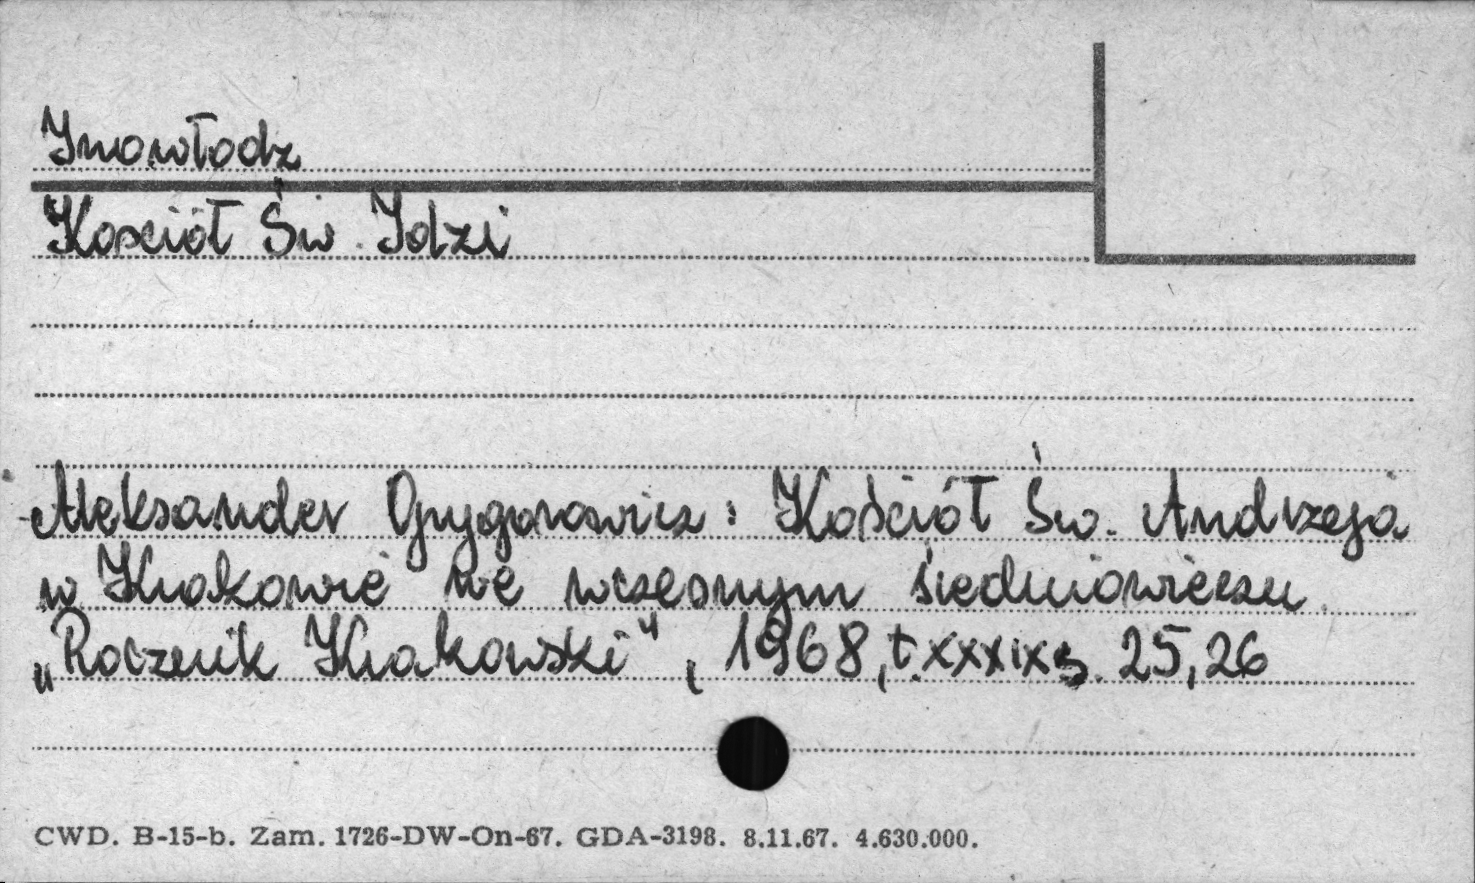 Inowłodz
Kościół Św. Idzi
Aleksander Grygorowicz: Kościół Św. Andrzeja
w Krakowie we wczesnym średniowieczu
„Rocznik Krakowski", 1968, t. XXXIX s. 25, 26
CWD. B-15-b. Zam. 1726-DW-On-67. GDA-3198. 8.11.67. 4.630.000.